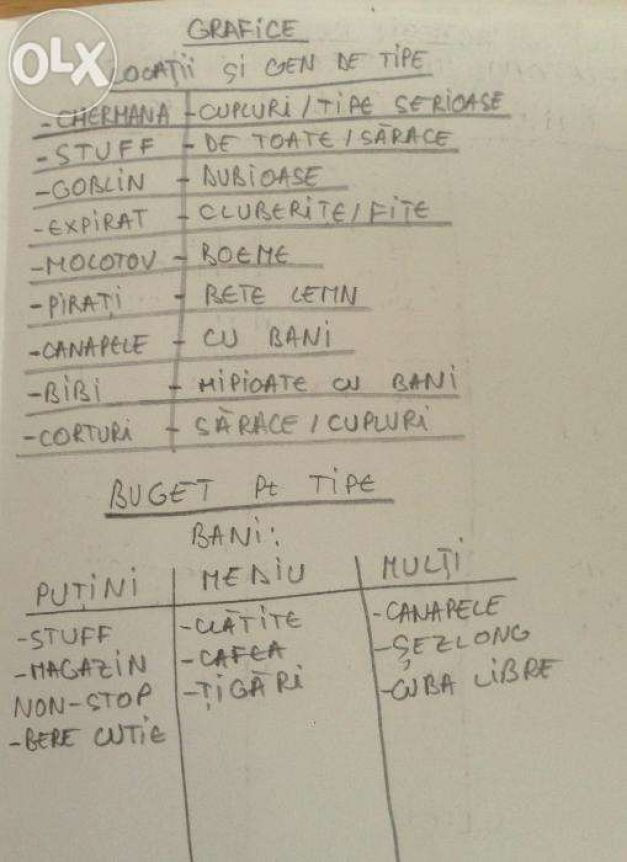 OLX
GRAFICE
LOCAȚII ȘI GEN DE TIPE
-CHERHANA -CUPLURI / TIPE SERIOASE
-STUFF - DE TOATE / SĂRACE
-GOBLIN - DUBIOASE
-EXPIRAT - CLUBERIȚE/FIȚE
-MOLOTOV - BOEME
-PIRAȚI - BETE LEMN
-CANAPELE - CU BANI
-BIBI - HIPIOATE CU BANI
-CORTURI - SĂRACE / CUPLURI
BUGET Pt TIPE
BANI:
PUȚINI MEDIU MULȚI
-STUFF -CLĂTITE -CANAPELE
-MAGAZIN -CAFEA -ȘEZLONG
NON-STOP -ȚIGĂRI -CUBA LIBRE
-BERE CUTIE